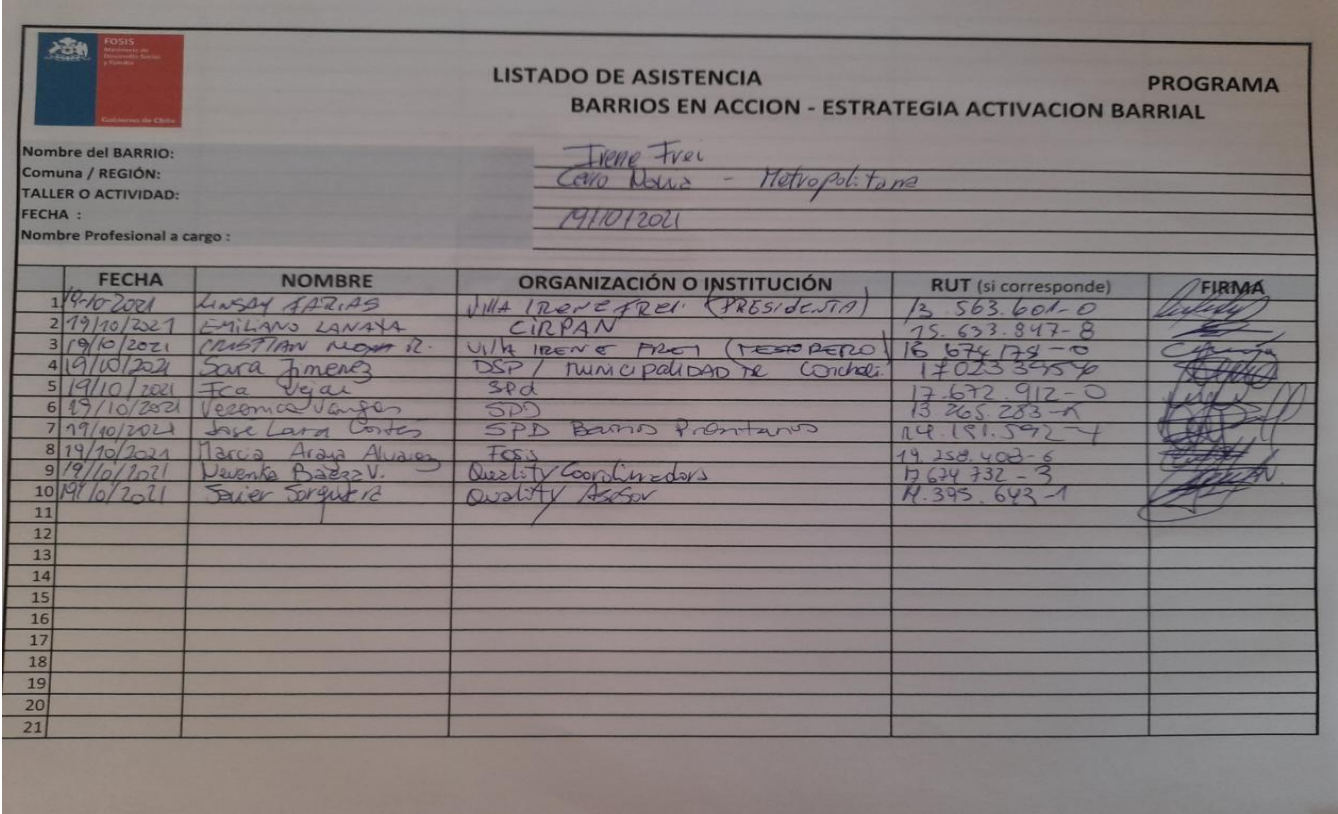 FOSIS
Ministerio de
Desarrollo Social
y Familia
Gobierno de Chile
LISTADO DE ASISTENCIA PROGRAMA
BARRIOS EN ACCION - ESTRATEGIA ACTIVACION BARRIAL
Nombre del BARRIO: Irene Frei
Comuna / REGIÓN: Cerro Navia - Metropolitana
TALLER O ACTIVIDAD:
FECHA : 19/10/2021
Nombre Profesional a cargo :
FECHA NOMBRE ORGANIZACIÓN O INSTITUCIÓN RUT (si corresponde) FIRMA
1 19-10-2021 LINSAY FARIAS VILLA IRENE FREI (PRESIDENTA) 13.563.601-0
2 19/10/2021 EMILIANO CIRPAN 15.633.847-8
3 19/10/2021 CRISTIAN R. VILLA IRENE FREI (TESORERO) 16 674 178-0
4 19/10/2021 Sara Jimenez DSP / MUNICIPALIDAD DE Conchali
5 19/10/2021 Fca Vejar SPd 17.672.912-0
6 19/10/2021 Veronica Vargas SPD 13 265.283-K
7 19/10/2021 Jose Lara Cortes SPD Barrios Prioritarios
8 19/10/2021 Marcia Araya Alvarez Fosis 19.258.403-6
9 19/10/2021 Nevenka Baeza V. Quality Coordinadora 17 674 732-3
10 19/10/2021 Quality Asesor
11
12
13
14
15
16
17
18
19
20
21